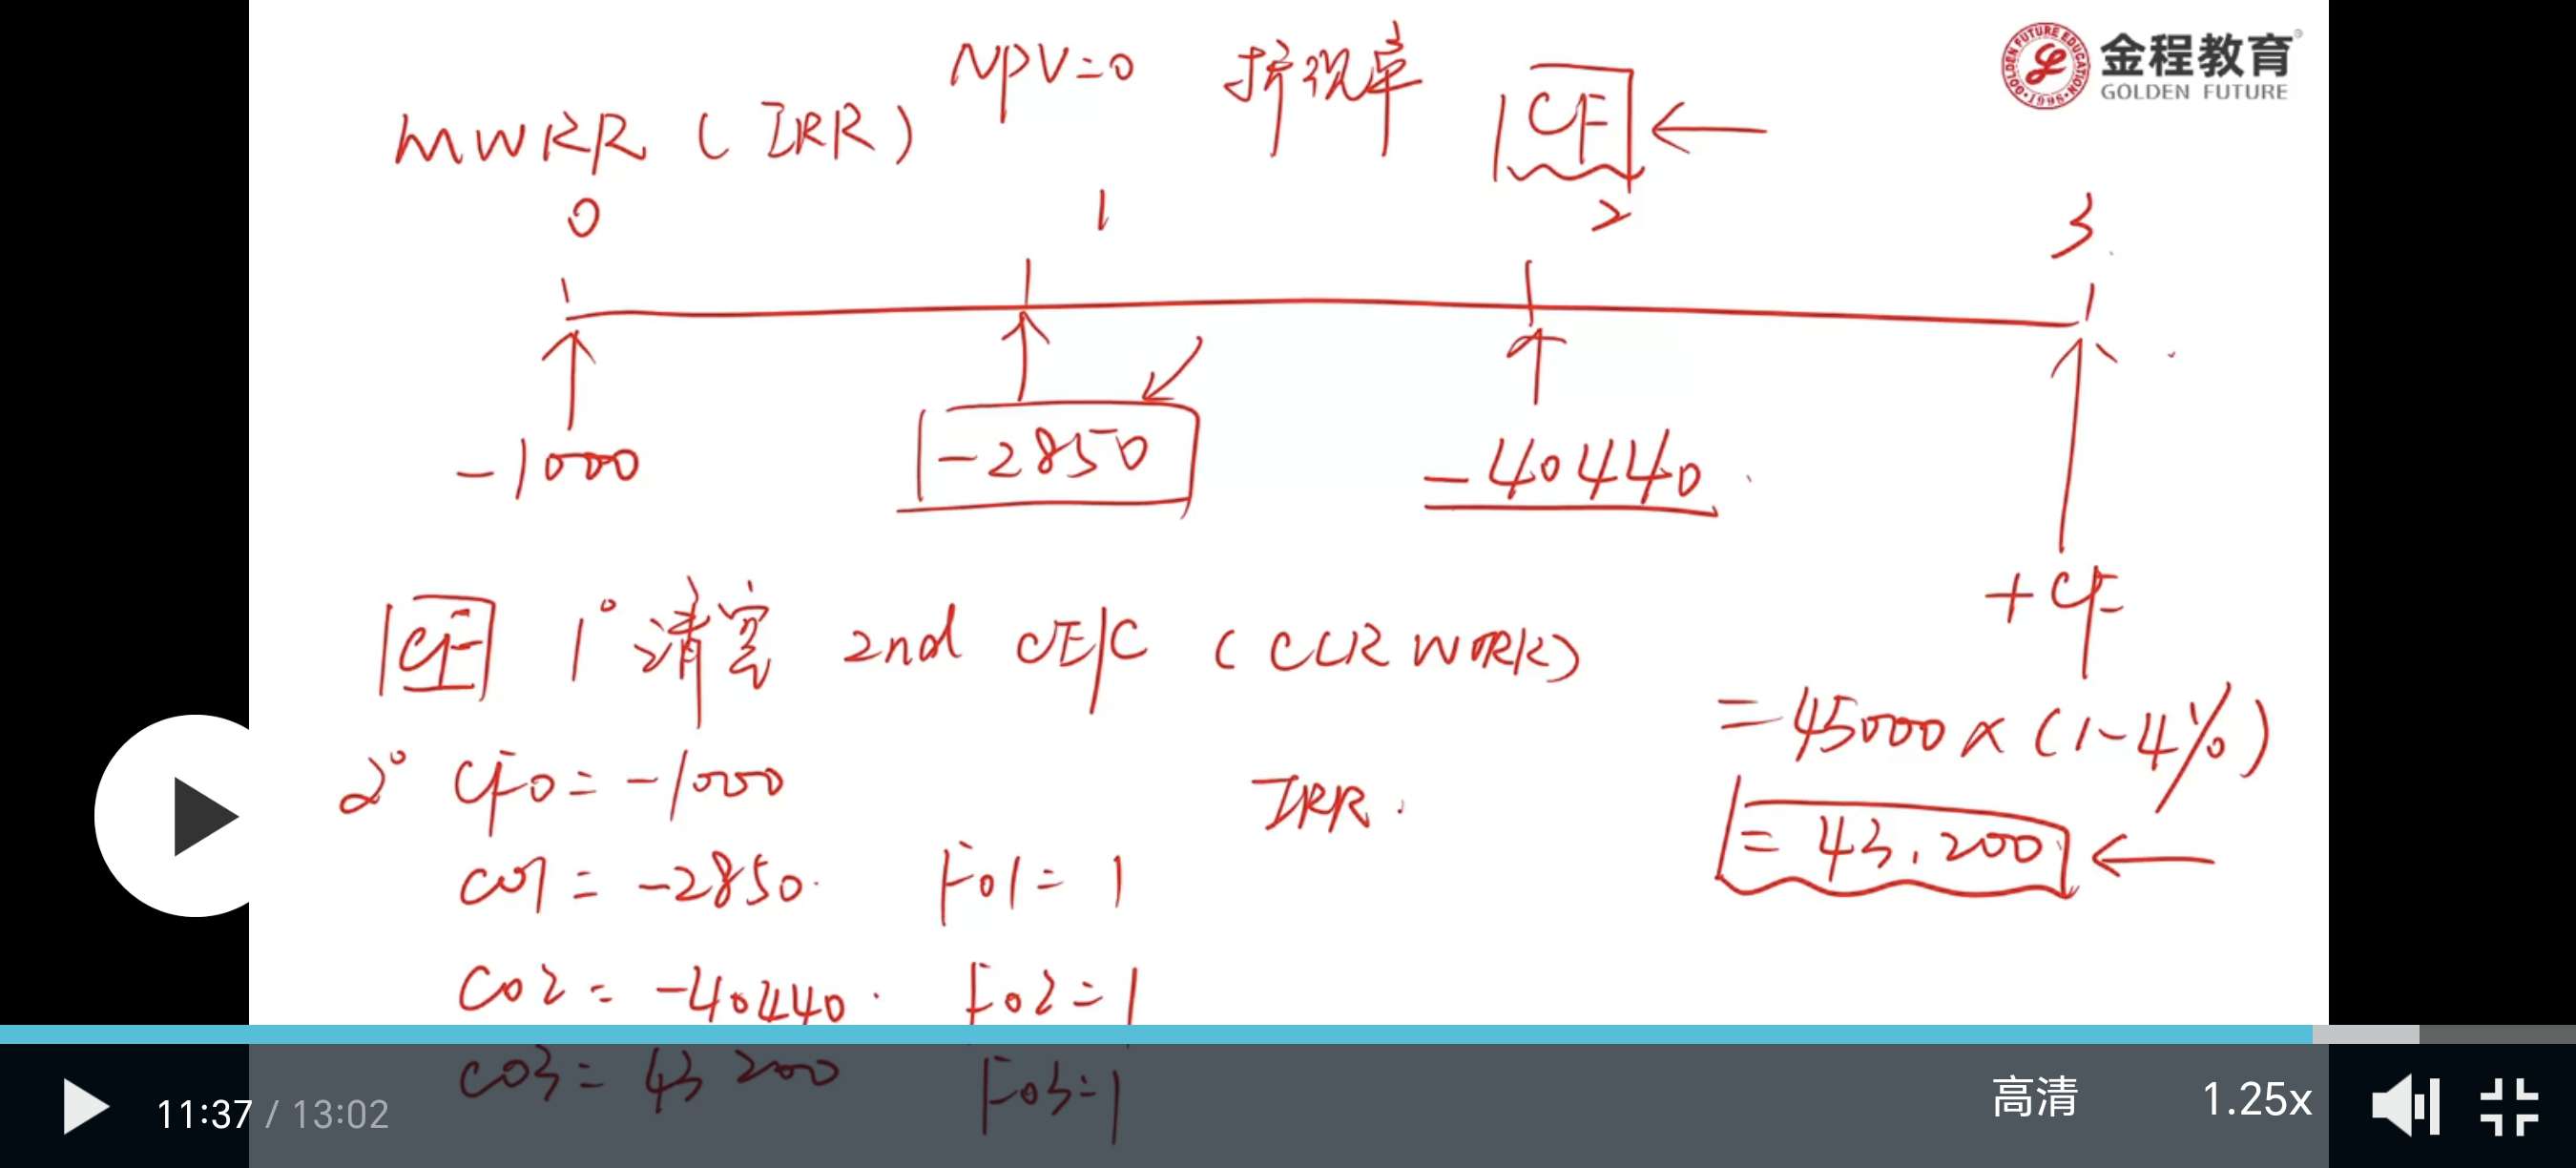 金程教育
GOLDEN FUTURE
GOLDEN FUTURE EDUCATION
·1998·
NPV=0 折现率 CF
MWRR (IRR)
0 1 2 3
-1000 -2850 -40440
+CF
CF 1° 清空 2nd CE/C (CLR WORK)
=45000×(1-4%)
=43,200
2° CF0=-1000 IRR.
C01=-2850. F01=1
C02=-40440. F02=1
C03=43200 F03=1
11:37 / 13:02
高清 1.25x